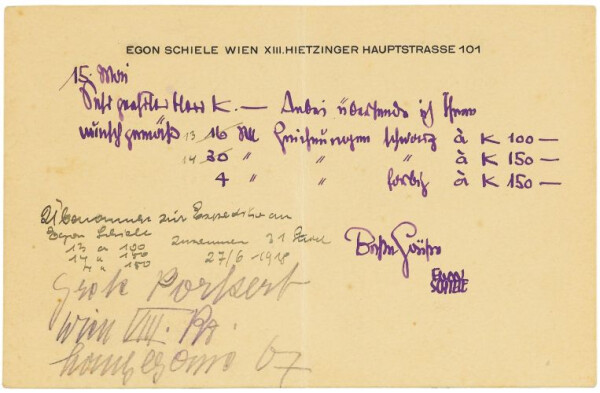 EGON SCHIELE WIEN XIII. HIETZINGER HAUPTSTRASSE 101
15. Mai
Sehr geehrter Herr K. — Anbei übersende ich Ihnen
wunschgemäß 13 16 Stk Zeichnungen schwarz à K 100 —
14 30 " " " à K 150 —
4 " " farbig à K 150 —
Übernommen zur Expedition an
Egon Schiele
13 a 100 zusammen 31 Stück
14 " 150 27/6 1918
4 " 150
Beste Grüße
EGON
SCHIELE
Grete
Wien VIII.
67